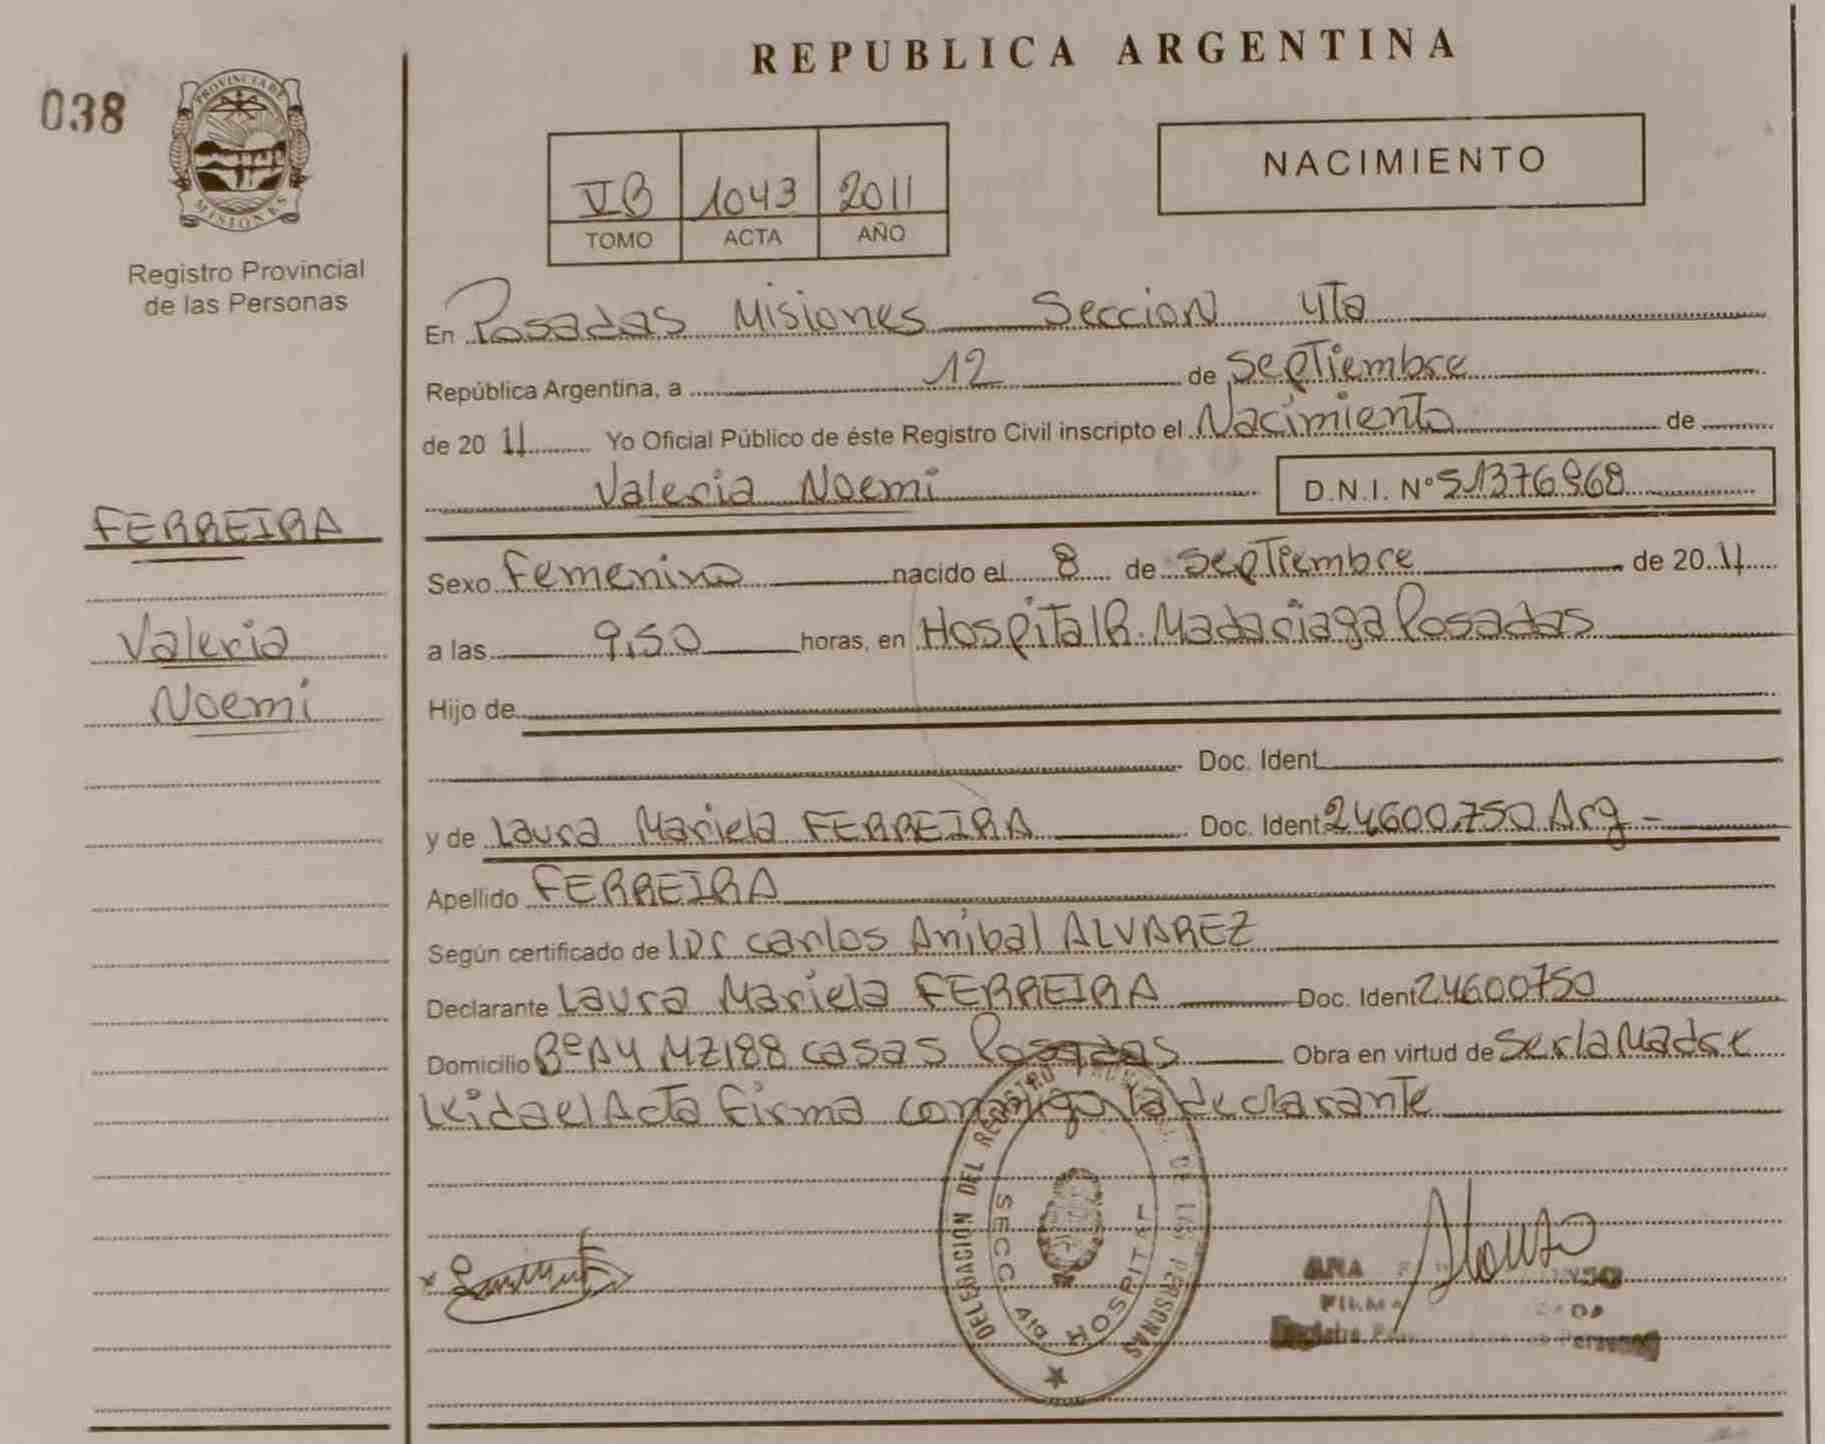 REPUBLICA ARGENTINA
038
PROVINCIA DE MISIONES
Registro Provincial
de las Personas
VB 1043 2011
TOMO ACTA AÑO
NACIMIENTO
En Posadas Misiones Seccion 4ta
República Argentina, a 12 de Septiembre
de 2011 Yo Oficial Público de éste Registro Civil inscripto el Nacimiento de
Valeria Noemi D.N.I. Nº 51376968
FERREIRA
Valeria
Noemi
Sexo Femenino nacido el 8 de Septiembre de 2011
a las 9,50 horas, en Hospital R. Madariaga Posadas
Hijo de
Doc. Ident
y de Laura Mariela FERREIRA Doc. Ident 24600.750 Arg -
Apellido FERREIRA
Según certificado de Carlos Anibal ALVAREZ
Declarante Laura Mariela FERREIRA Doc. Ident 24600750
Domicilio BºA4 MZ188 casas Posadas Obra en virtud de Ser la Madre
leida el Acta firma conmigo la declarante
DELEGACION DEL REGISTRO DE LAS PERSONAS
SECC. 4ta HOSPITAL
ANA
Personas